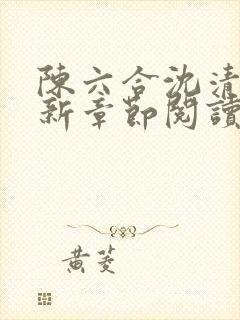 陳六合沈清
新章節閱讀
黃菱